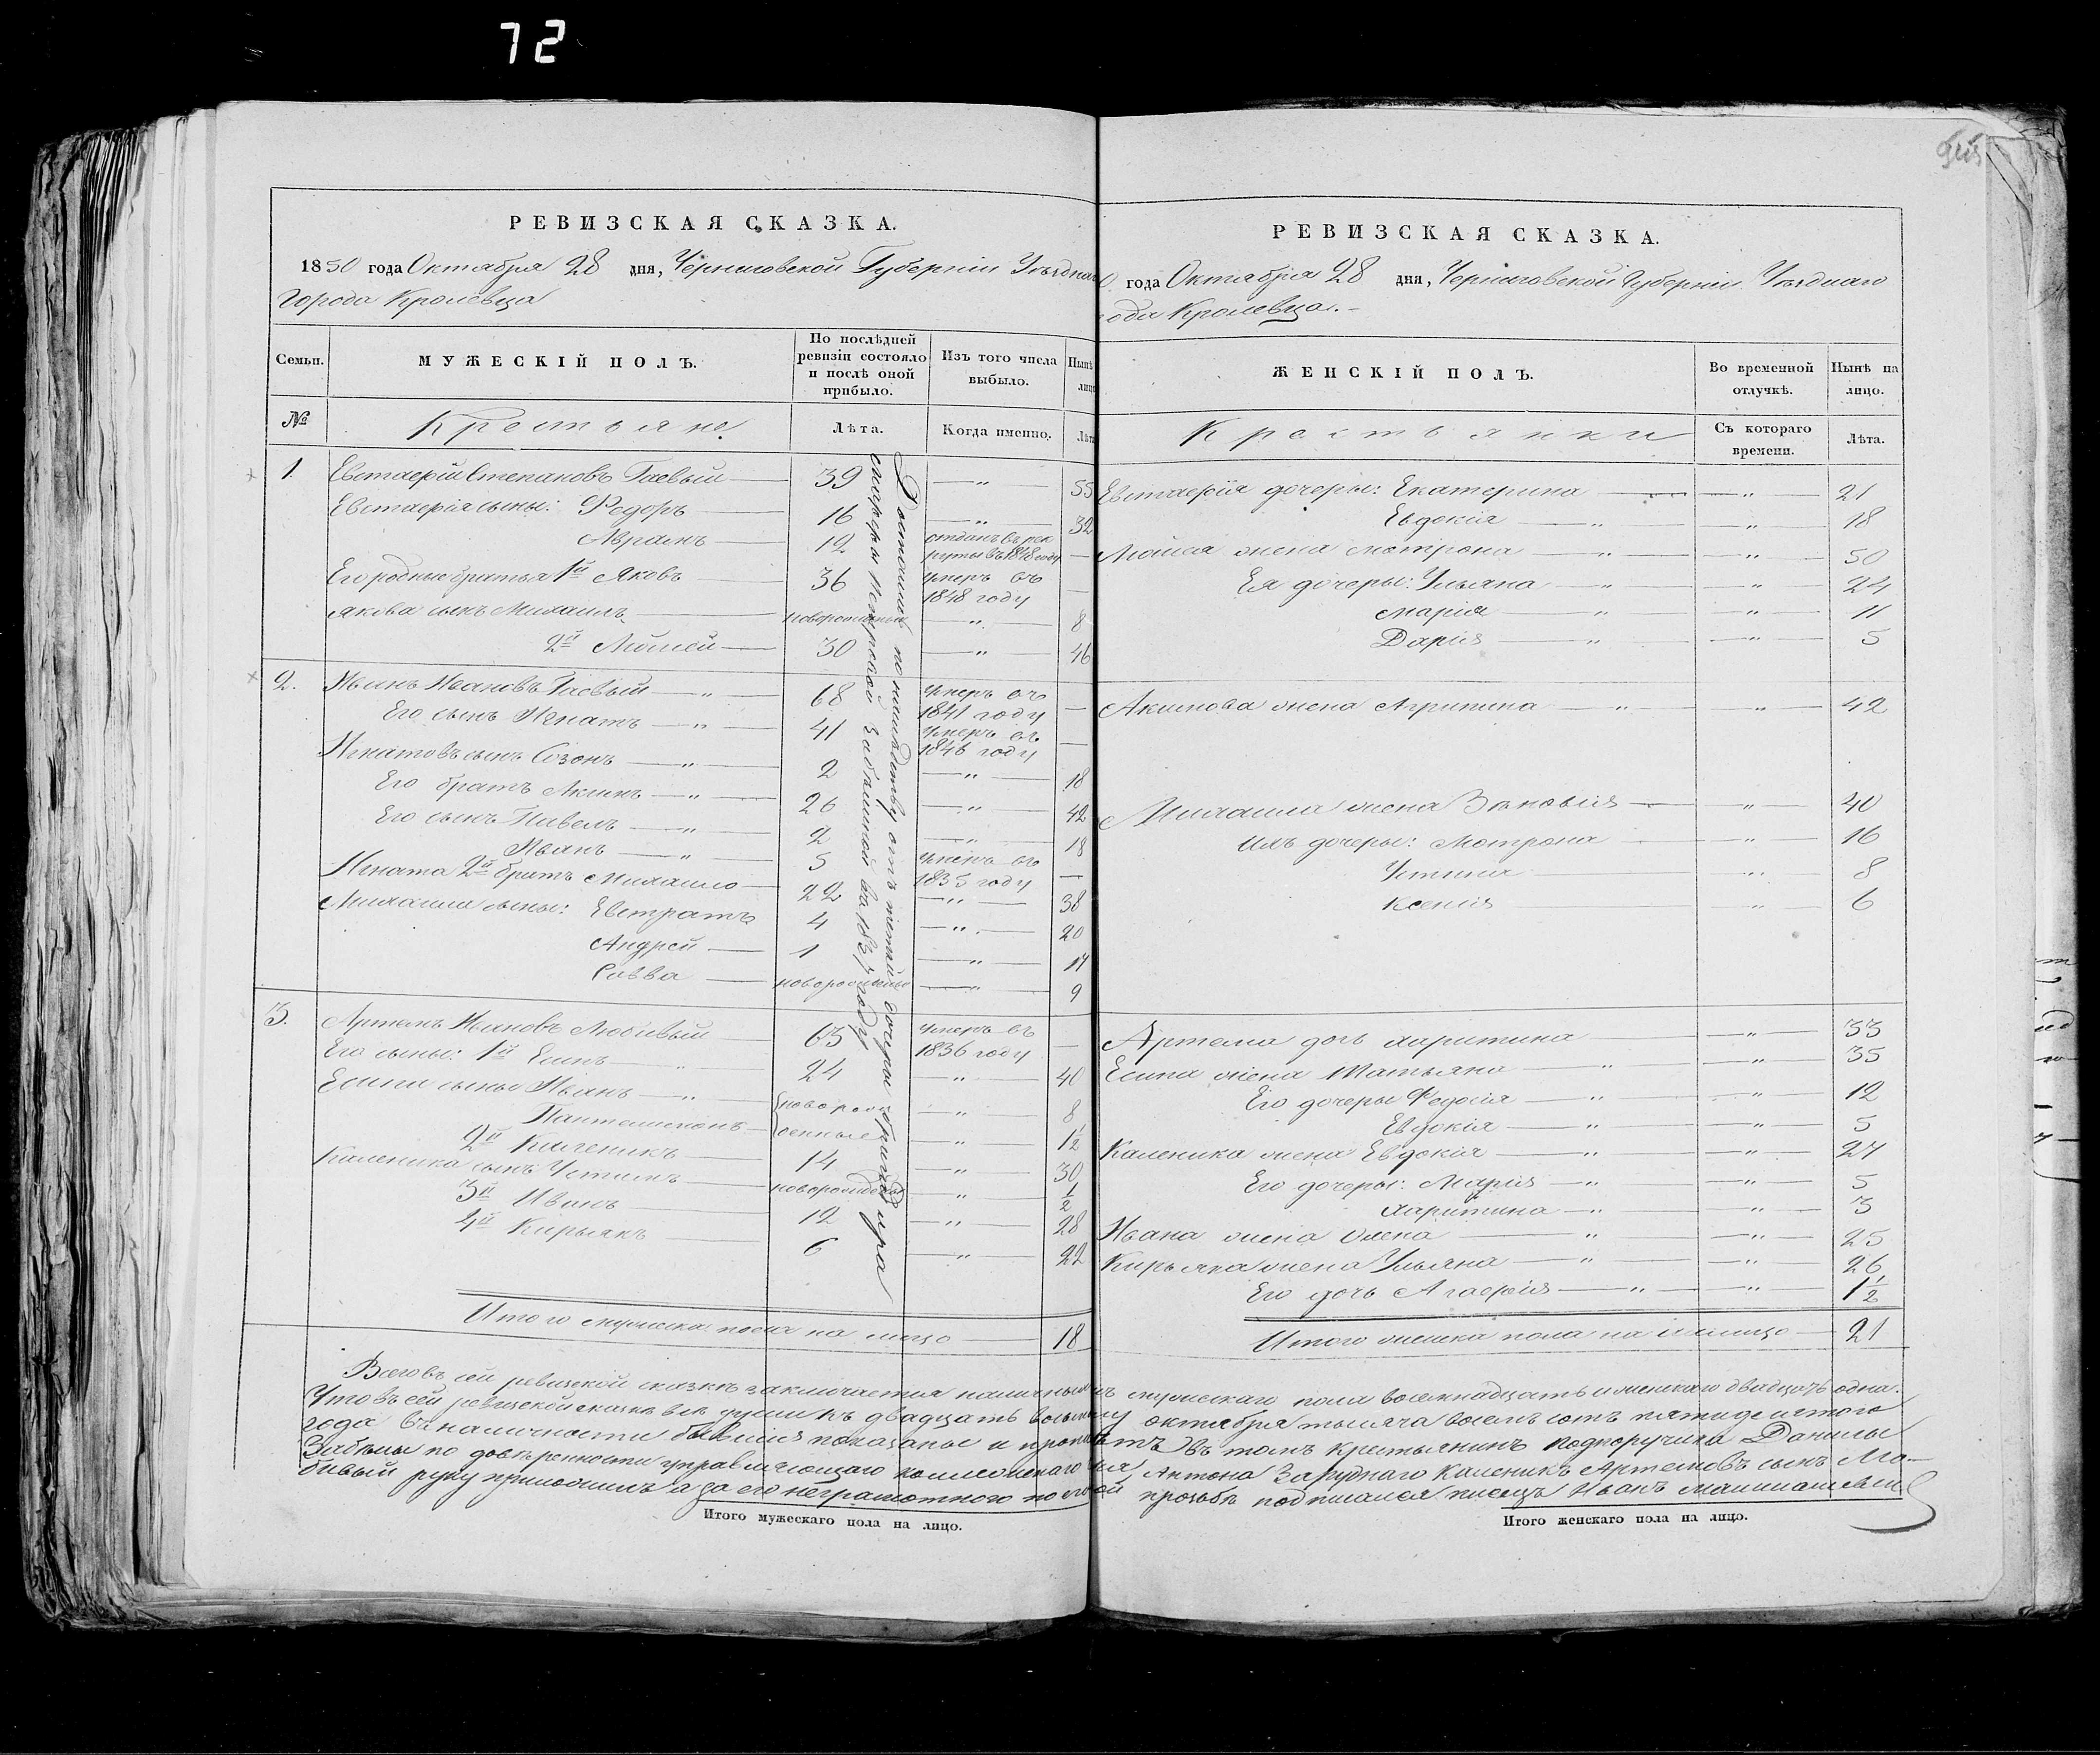 72
РЕВИЗСКАЯ СКАЗКА.
1850 года Октября 28 дня, Черниговской Губерніи Уѣзднаго
города Кролевца
Семьи. МУЖЕСКІЙ ПОЛЪ. По послѣдней ревизіи состояло и послѣ оной прибыло. Изъ того числа выбыло. Нынѣ на лицо
№ Крестьяне Лѣта. Когда именно. Лѣта
1. Евстаерій Степановъ Гаевый — 39 — „ — 55
Евстаерія сыны: Федоръ — 16 — „ — 32
Аврамъ — 12 отданъ въ рекруты въ 1848 году —
Его родные братья 1й Яковъ — 36 умеръ въ 1848 году —
Якова сынъ Михаилъ — новорожденный — „ — 8
2й Мойсей — 30 — „ — 46
2. Иванъ Ивановъ Гаевый — „ — 68 умеръ въ 1841 году —
Его сынъ Игнатъ — „ — 41 умеръ въ 1846 году —
Игнатовъ сынъ Созонъ — „ — 2 — „ — 18
Его братъ Акимъ — „ — 26 — „ — 42
Его сынъ Павелъ — „ — 2 — „ — 18
Иванъ — „ — 5 умеръ въ 1835 году —
Игната 2й братъ Михайло — 22 — „ — 38
Михайла сыны: Евстратъ 4 — „ — 20
Андрей — 1 — „ — 17
Савва — новорожденный — „ — 9
3. Артемъ Ивановъ Любивый — 65 умеръ въ 1836 году —
Его сыны: 1й Есипъ — „ 24 — „ — 40
Есипа сыны Иванъ — „ — новорож — „ — 8
Пантелимонъ — денные — „ — 1½
2й Каленикъ — 14 — „ — 30
Каленика сынъ Устимъ — новорожденный — „ — ½
3й Иванъ — 12 — „ — 28
4й Кирьякъ — 6 — „ — 22
Итого мужеска пола на лицо — 18
Достались по наслѣдству отъ тетки дочери бригадира
Забѣлиной въ 183 году
РЕВИЗСКАЯ СКАЗКА.
0 года Октября 28 дня, Черниговской Губерніи Уѣзднаго
ода Кролевца. —
ЖЕНСКІЙ ПОЛЪ. Во временной отлучкѣ. Нынѣ на лицо.
Крестьянки Съ котораго времени. Лѣта.
Евстаерія дочеры: Екатерина — — „ — 21
Евдокія — „ — „ — 18
Мойсея жена Мотрона — „ — „ — 50
Ея дочеры: Ульяна — „ — „ — 24
Марія — „ — „ — 11
Дарія — „ — „ — 5
Акимова жена Агрипина — „ — „ — 42
Михайла жена Зѣновія — — „ — 40
Ихъ дочеры: Мотрона — „ — 16
Устина — „ — 8
Ксенія — „ — 6
Артема дочь Харитина — „ — 33
Есипа жена Татьяна — „ — „ — 35
Его дочеры Федосія — „ — „ — 12
Евдокія — „ — „ — 5
Каленика жена Евдокія — „ — „ — 27
Его дочеры: Марія — „ — „ — 5
Харитина — „ — „ — 3
Ивана жена Олена — „ — „ — 25
Кирьяка жена Ульяна — „ — „ — 26
Его дочь Агаерія — „ — „ — 1½
Итого женска пола на лицо — 21
Всего въ сей ревизской сказкѣ заключается наличныхъ мужескаго пола восемнадцать и женскаго двадцать одна.
Что въ сей ревизской сказкѣ всѣ души къ двадцать восьмому октября тысяча восемь сотъ пятидесятого
года въ наличности бывшія показаны и прописъ въ томъ крестьянинъ подпоручика Данилы
Забѣлы по довѣренности управляющаго Антона Заруднаго Каленикъ Артемовъ сынъ Лю-
бивый руку приложилъ а за его неграмотного по его прозьбѣ подписался писецъ Иванъ
Итого мужескаго пола на лицо.
Итого женскаго пола на лицо.